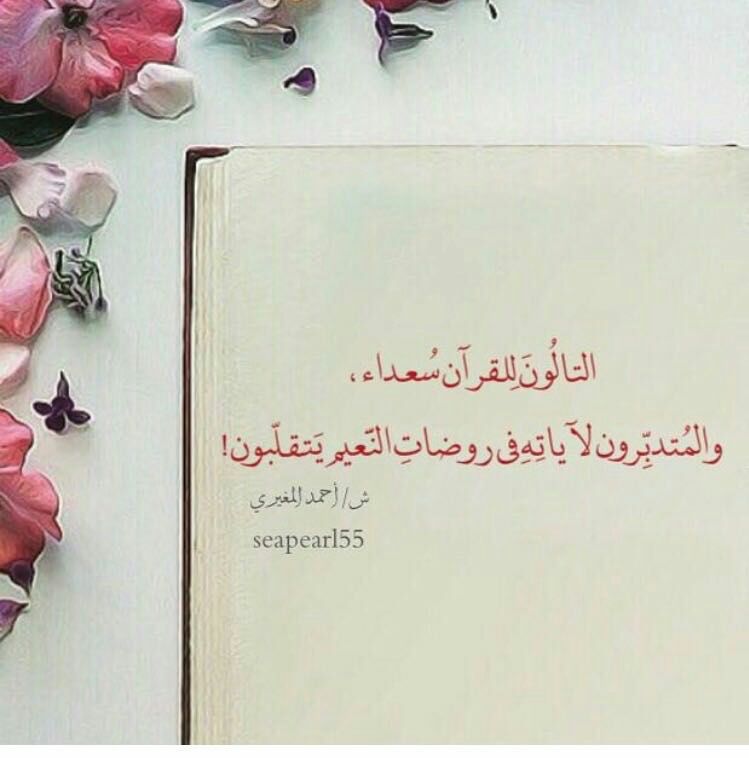 التالُونَ لِلقرآن سُعداء،
والمُتدبِّرون لآياتِهِ فى روضاتِ النّعيم يَتقلّبون!
ش/أحمد المغيري
seapearl55